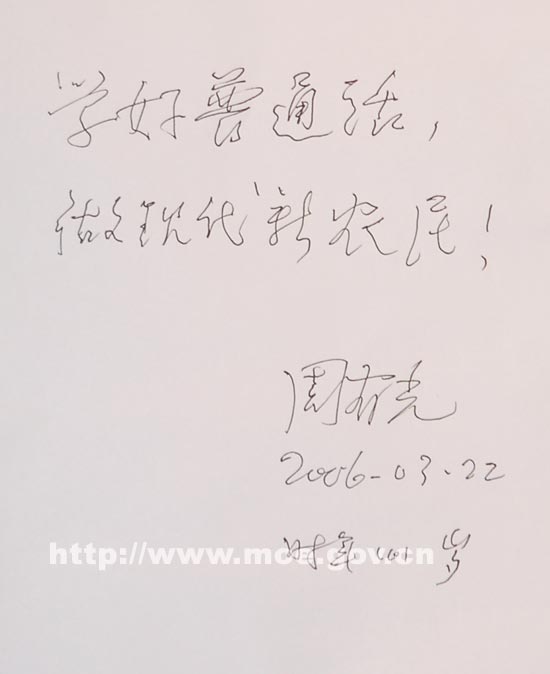 学好普通话,
做现代新农民!
周有光
2006-03-22
时年101岁
http://www.moe.gov.cn